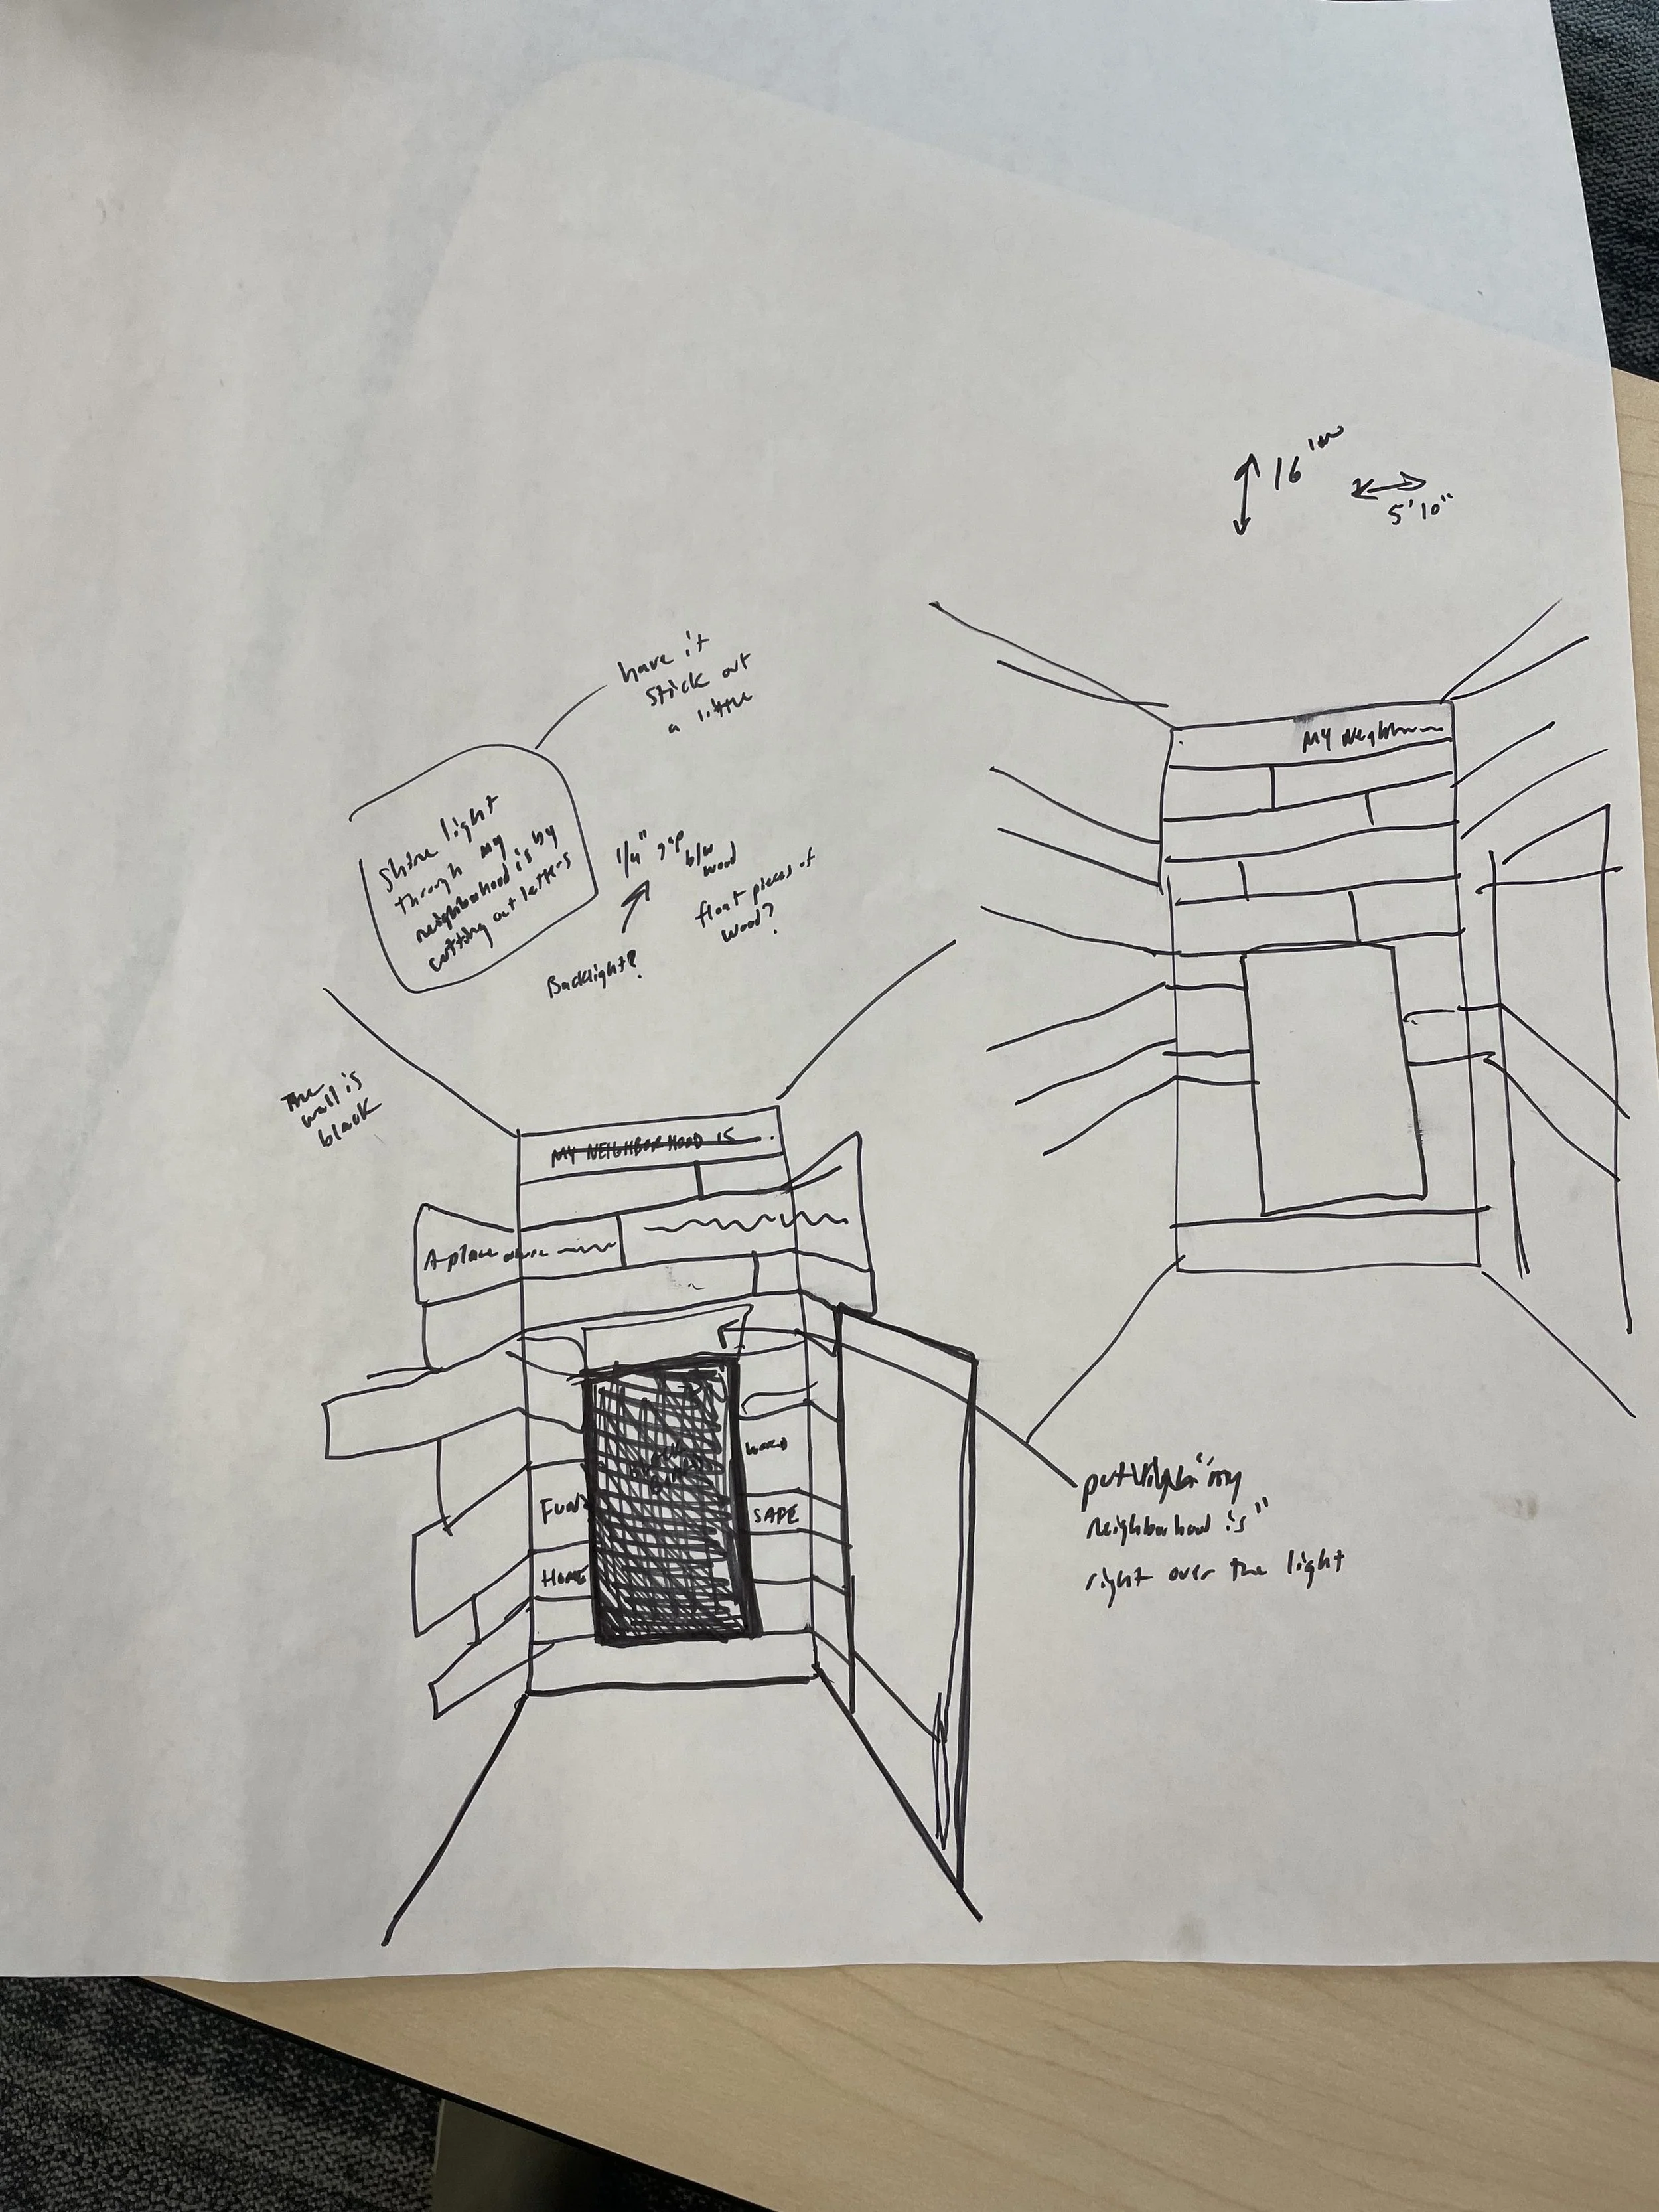 16'
5'10"
have it
stick out
a little
shine light
through my
neighborhood is by
cutting out letters
1/4" gap
b/w
wood
float pieces of
wood?
Backlight?
The
wall is
black
MY
MY NEIGHBORHOOD IS
A place
WORD
FUN
SAFE
HOME
put "my
neighborhood is"
right over the light